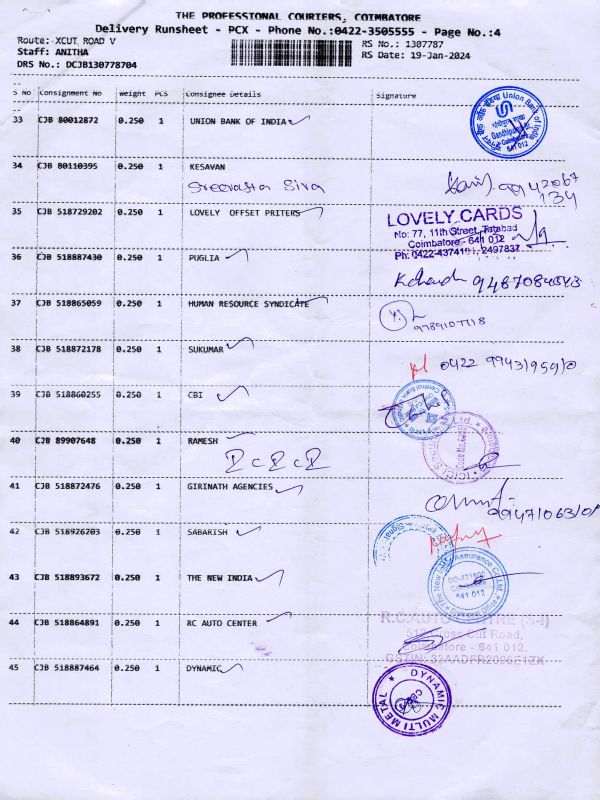 THE PROFESSIONAL COURIERS, COIMBATORE
Delivery Runsheet - PCX - Phone No.:0422-3505555 - Page No.:4
Route: XCUT ROAD V
RS No.: 1307787
Staff: ANITHA
RS Date: 19-Jan-2024
DRS No.: DCJB130778704
S No Consignment No Weight PCS Consignee Details Signature
33 CJB 80012872 0.250 1 UNION BANK OF INDIA
Union Bank of India
Gandhipuram Br.
Coimbatore
641 012
34 CJB 80110395 0.250 1 KESAVAN
Sreevatsa Siva
9942067
134
35 CJB 518729202 0.250 1 LOVELY OFFSET PRITERS
LOVELY CARDS
No: 77, 11th Street, Tatabad
Coimbatore - 641 012
Ph: 0422-4374191, 2497837
36 CJB 518887430 0.250 1 PUGLIA
37 CJB 518865059 0.250 1 HUMAN RESOURCE SYNDICATE
38 CJB 518872178 0.250 1 SUKUMAR
0422
39 CJB 518860255 0.250 1 CBI
40 CJB 89907648 0.250 1 RAMESH
41 CJB 518872476 0.250 1 GIRINATH AGENCIES
42 CJB 518926203 0.250 1 SABARISH
43 CJB 518893672 0.250 1 THE NEW INDIA
The New India Assurance Co. Ltd.
641 012
44 CJB 518864891 0.250 1 RC AUTO CENTRE
R.C.AUTO CENTRE (S-I)
Cross Cut Road,
Coimbatore - 641 012.
45 CJB 518887464 0.250 1 DYNAMIC
DYNAMIC MULTI METAL
CBE-3